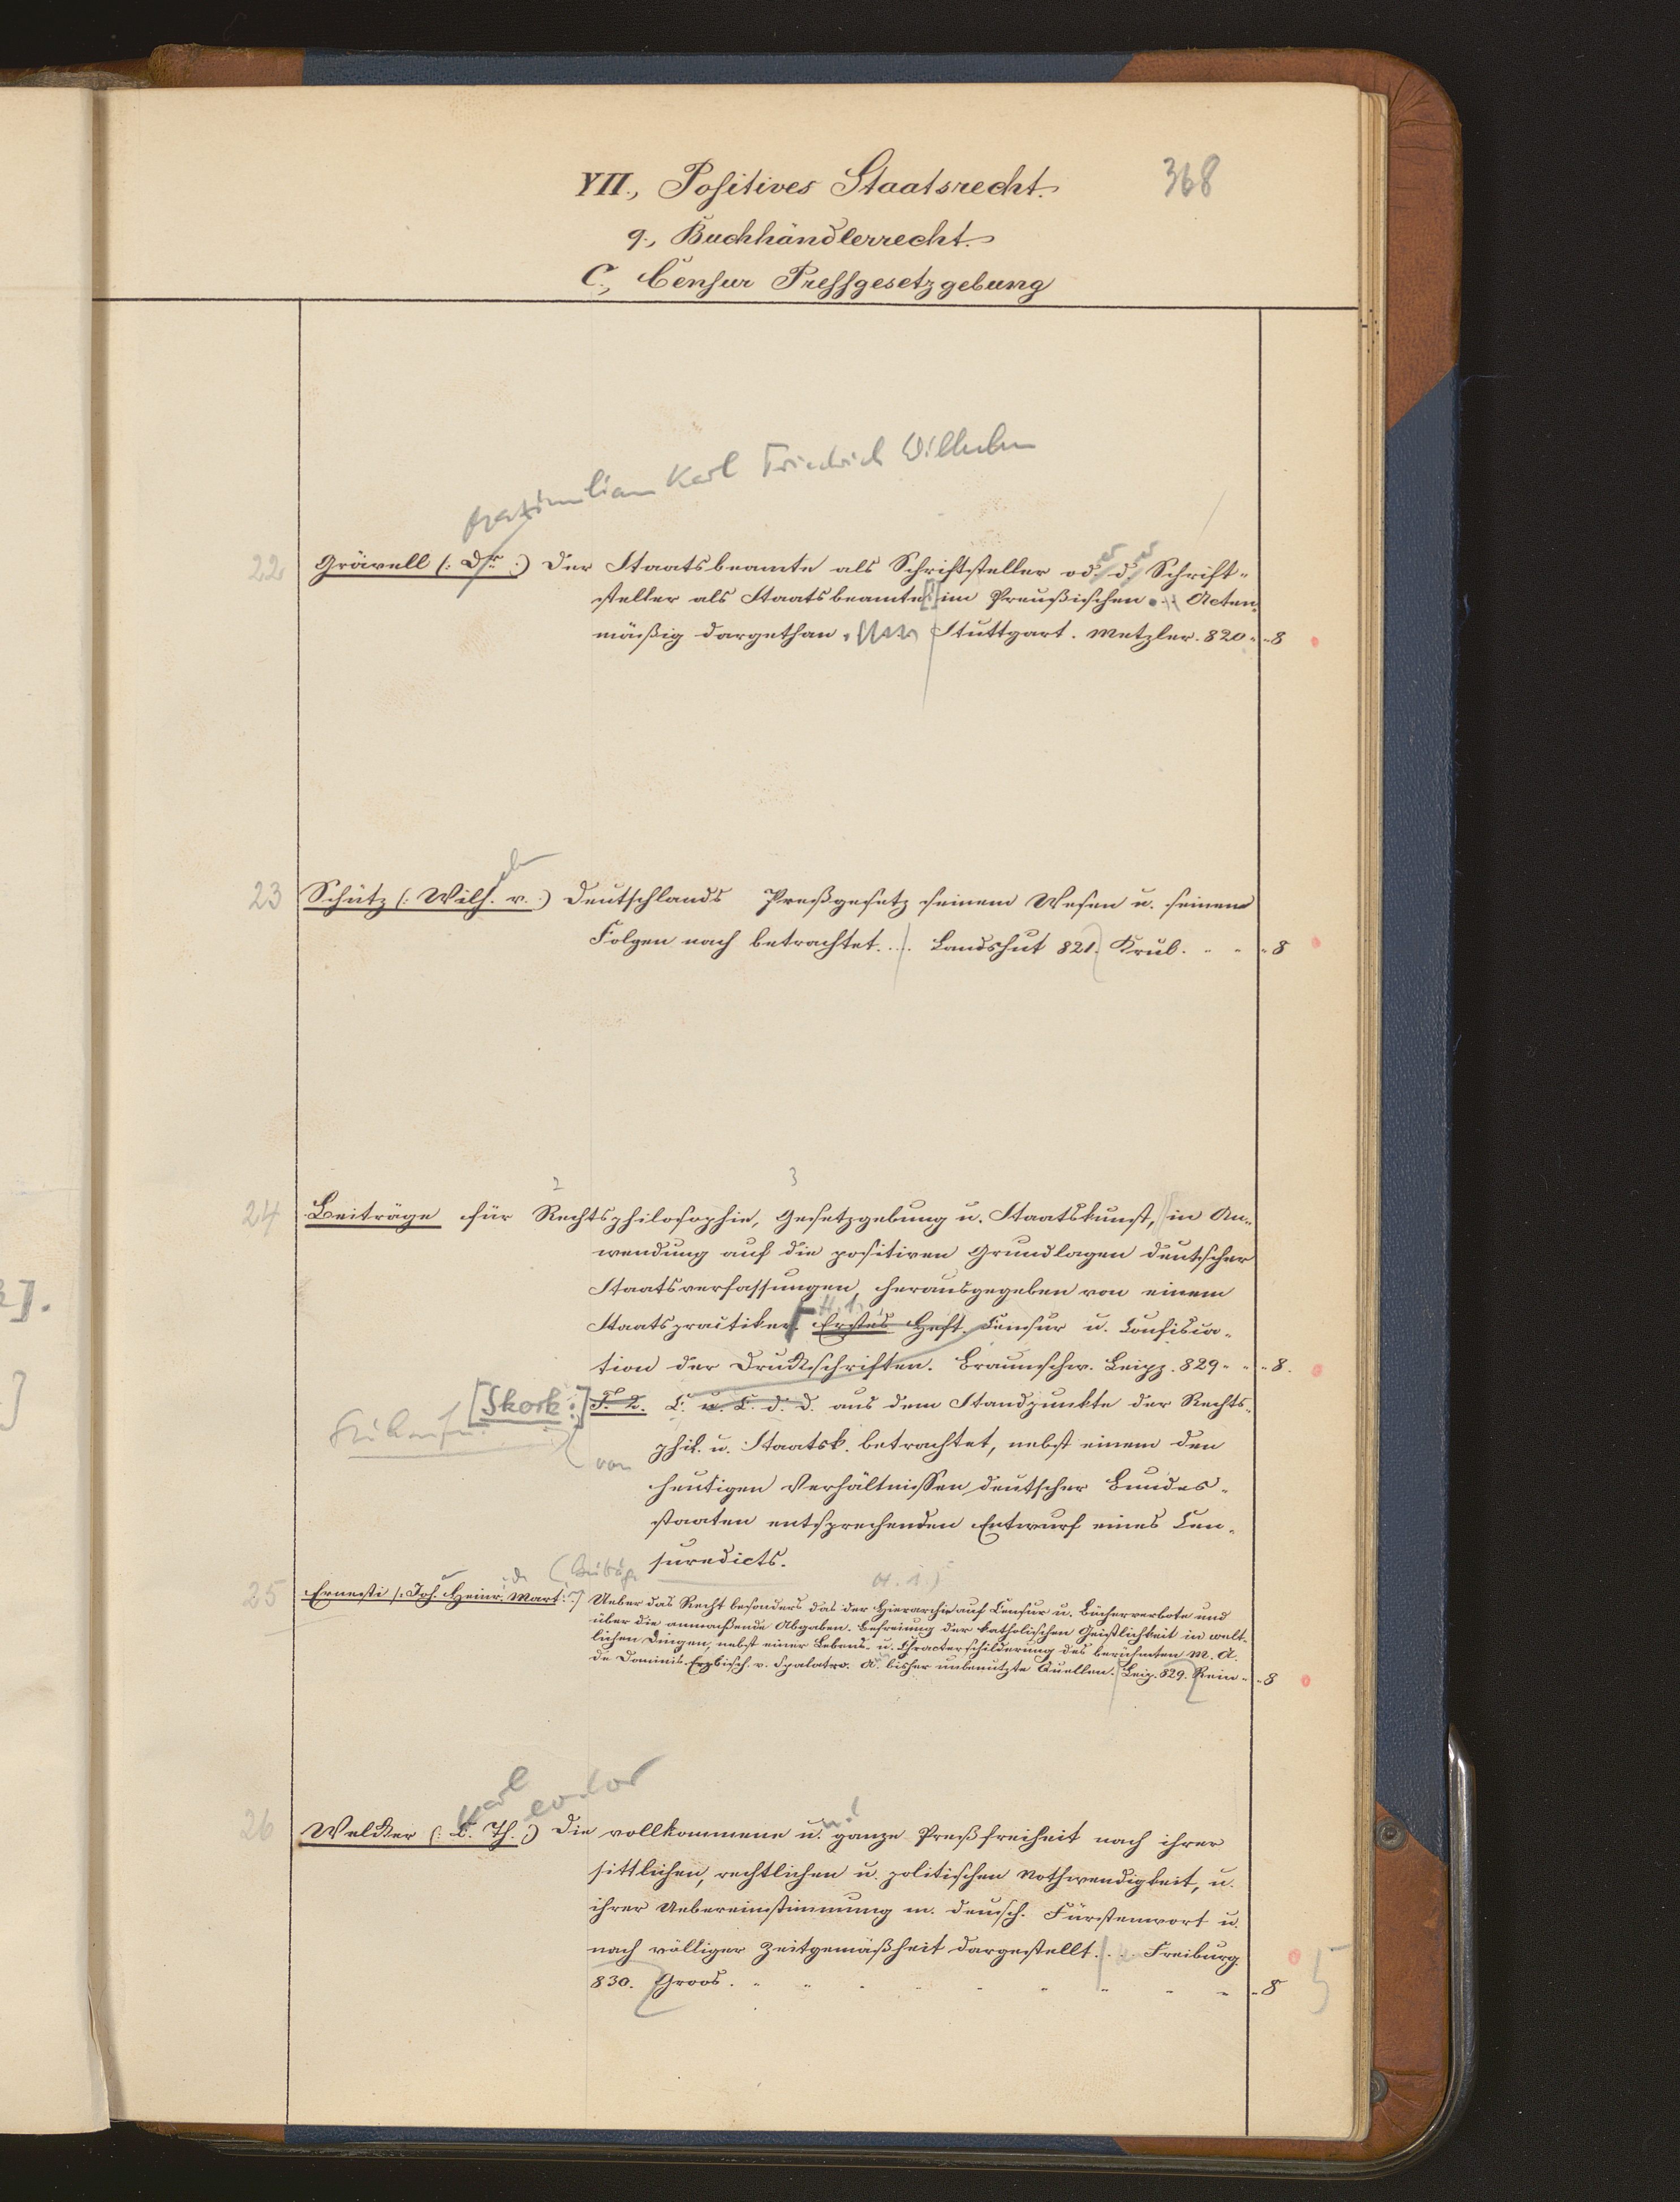 368
VII., Positives Staatsrecht.
q., Buchhändlerrecht.
C., Censur Pressgesetzgebung
Maximilian Karl Friedrich Wilhelm
22 Grävell (: Dr :) Der Staatsbeamte als Schriftsteller od. d. Schrift-
steller als Staatsbeamter im Preußischen . Acten-
mäßig dargethan. Stuttgart. Metzler. 820. 8
23 Schütz (: Wilh. v. :) Deutschlands Preßgesetz seinem Wesen u. seinen
Folgen nach betrachtet. . . Landshut 821. Krüll. 8
2 3
24 Beiträge für Rechtsphilosophie, Gesetzgebung u. Staatskunst, in An-
wendung auf die positiven Grundlagen deutscher
Staatsverfassungen, herausgegeben von einem
H. 1.
Staatspractiker. Erstes Heft. Censur u. Confisca-
tion der Druckschriften. Braunschw. Leipz. 829. 8.
[Skork:] T. 2. C. u. C. d. D. aus dem Standpunkte der Rechts-
von phil. u. Staatsk. betrachtet, nebst einem den
heutigen Verhältnissen deutscher Bundes-
staaten entsprechenden Entwurf eines Cen-
suredicts.
(Beiträge H. 1.)
25 Ernesti (: Joh. Heinr. Mart. :) Ueber das Recht besonders das der Hierarchie auf Censur u. Bücherverbote und
über die anmaßende Abgaben-Befreiung der katholischen Geistlichkeit in welt-
lichen Dingen, nebst einer Lebens- u. Chracterschilderung des berühmten M. A.
de Dominis Erzbisch. v. Spalatro. A. bisher unbenutzte Quellen. Leip. 829. Rein 8
Karl eodor
26 Welcker (: C. Th. :) Die vollkommene u. ganze Preßfreiheit nach ihrer
sittlichen, rechtlichen u. politischen Nothwendigkeit, u.
ihrer Uebereinstimmung m. deutsch. Fürstenwort u.
nach völliger Zeitgemäßheit dargestellt. . . Freiburg.
830. Groos. 8 5